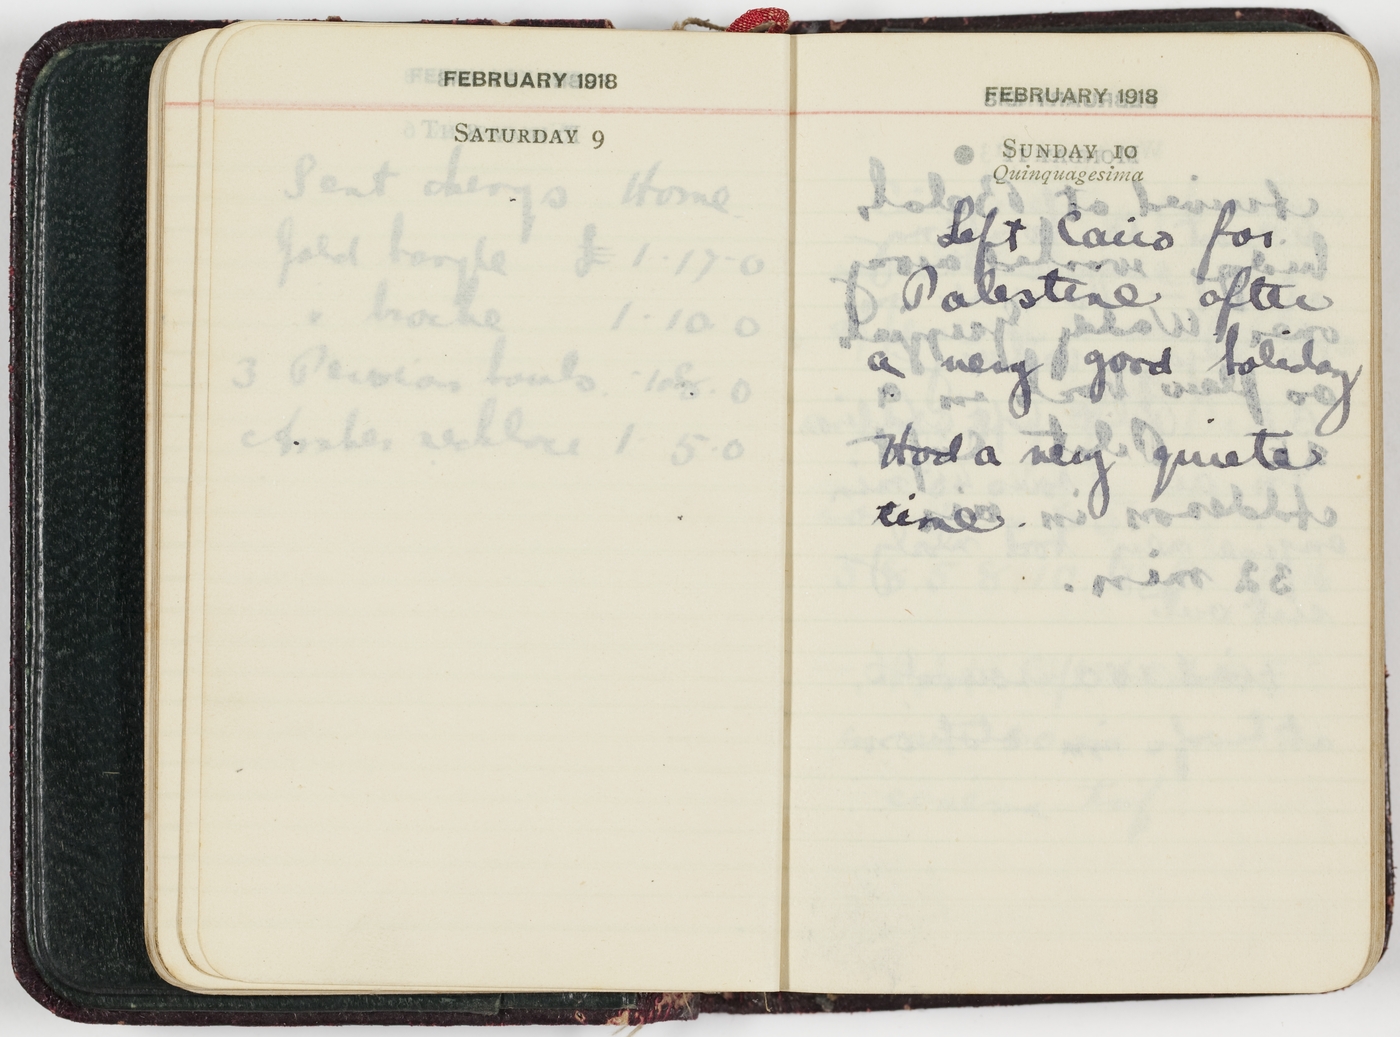 FEBRUARY 1918
SATURDAY 9
Sent cherrys Home
Gold bangle £1-17-0
" broche 1-10-0
3 Persian bowls
Amber necklace 1 5-0
FEBRUARY 1918
SUNDAY 10
Quinquagesima
Left Cairo for
Palestine after
a very good holiday
Had a very quiete
time.